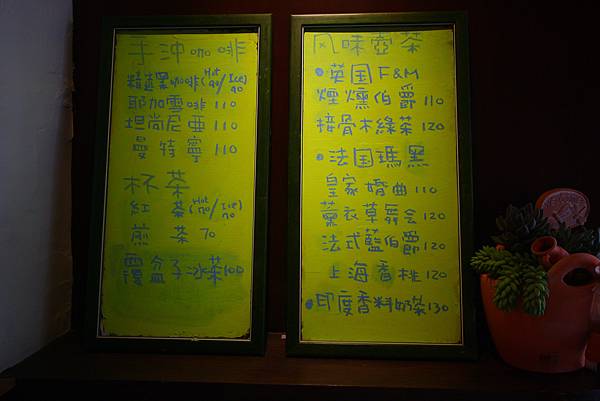 手沖咖啡
精選黑咖啡(Hot 90/Ice 90)
耶加雪啡 110
坦尚尼亞 110
曼特寧 110
杯茶
紅茶(Hot 70/Ice 70)
煎茶 70
覆盆子冰茶100
风味壺茶
●英国F&M
煙燻伯爵 110
接骨木綠茶 120
●法国瑪黑
皇家婚曲 110
薰衣草舞会 120
法式藍伯爵 120
上海香桃 120
●印度香料奶茶130